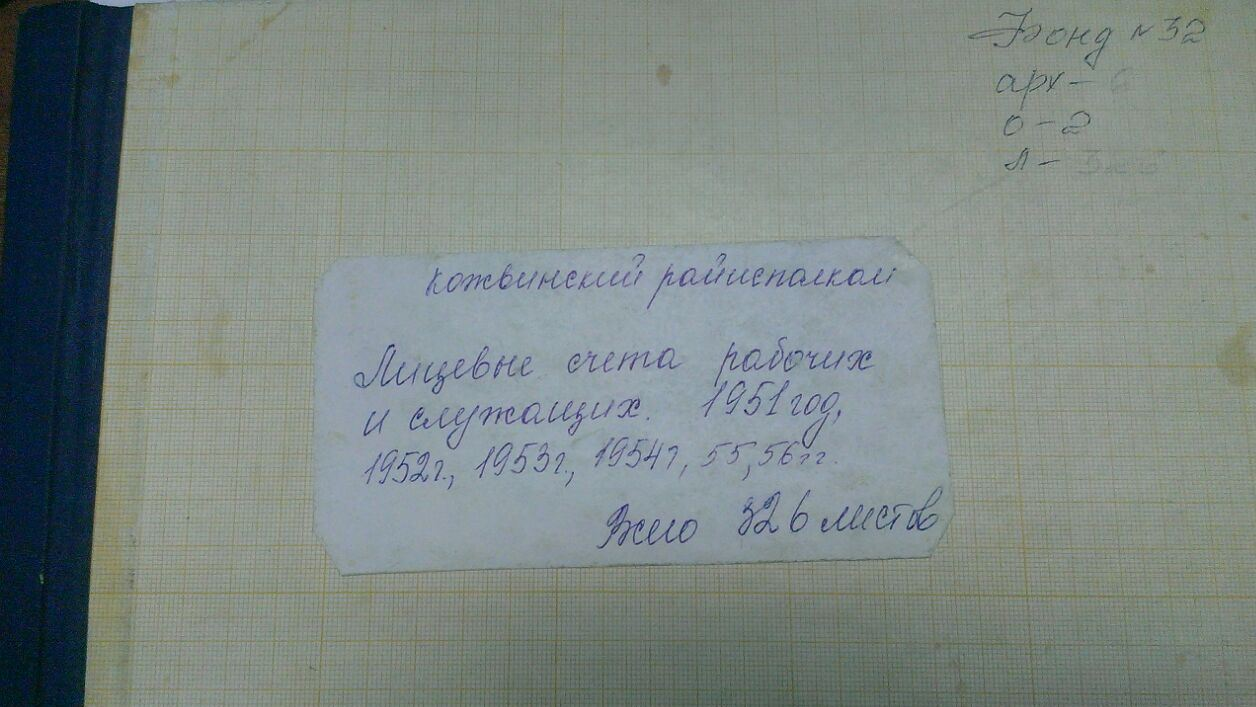 Фонд № 32
арх - 6
о - 2
л - 326
Кожвинский райисполком
Лицевые счета рабочих
и служащих. 1951 год,
1952г., 1953г., 1954г, 55, 56 гг.
Всего 326 листов